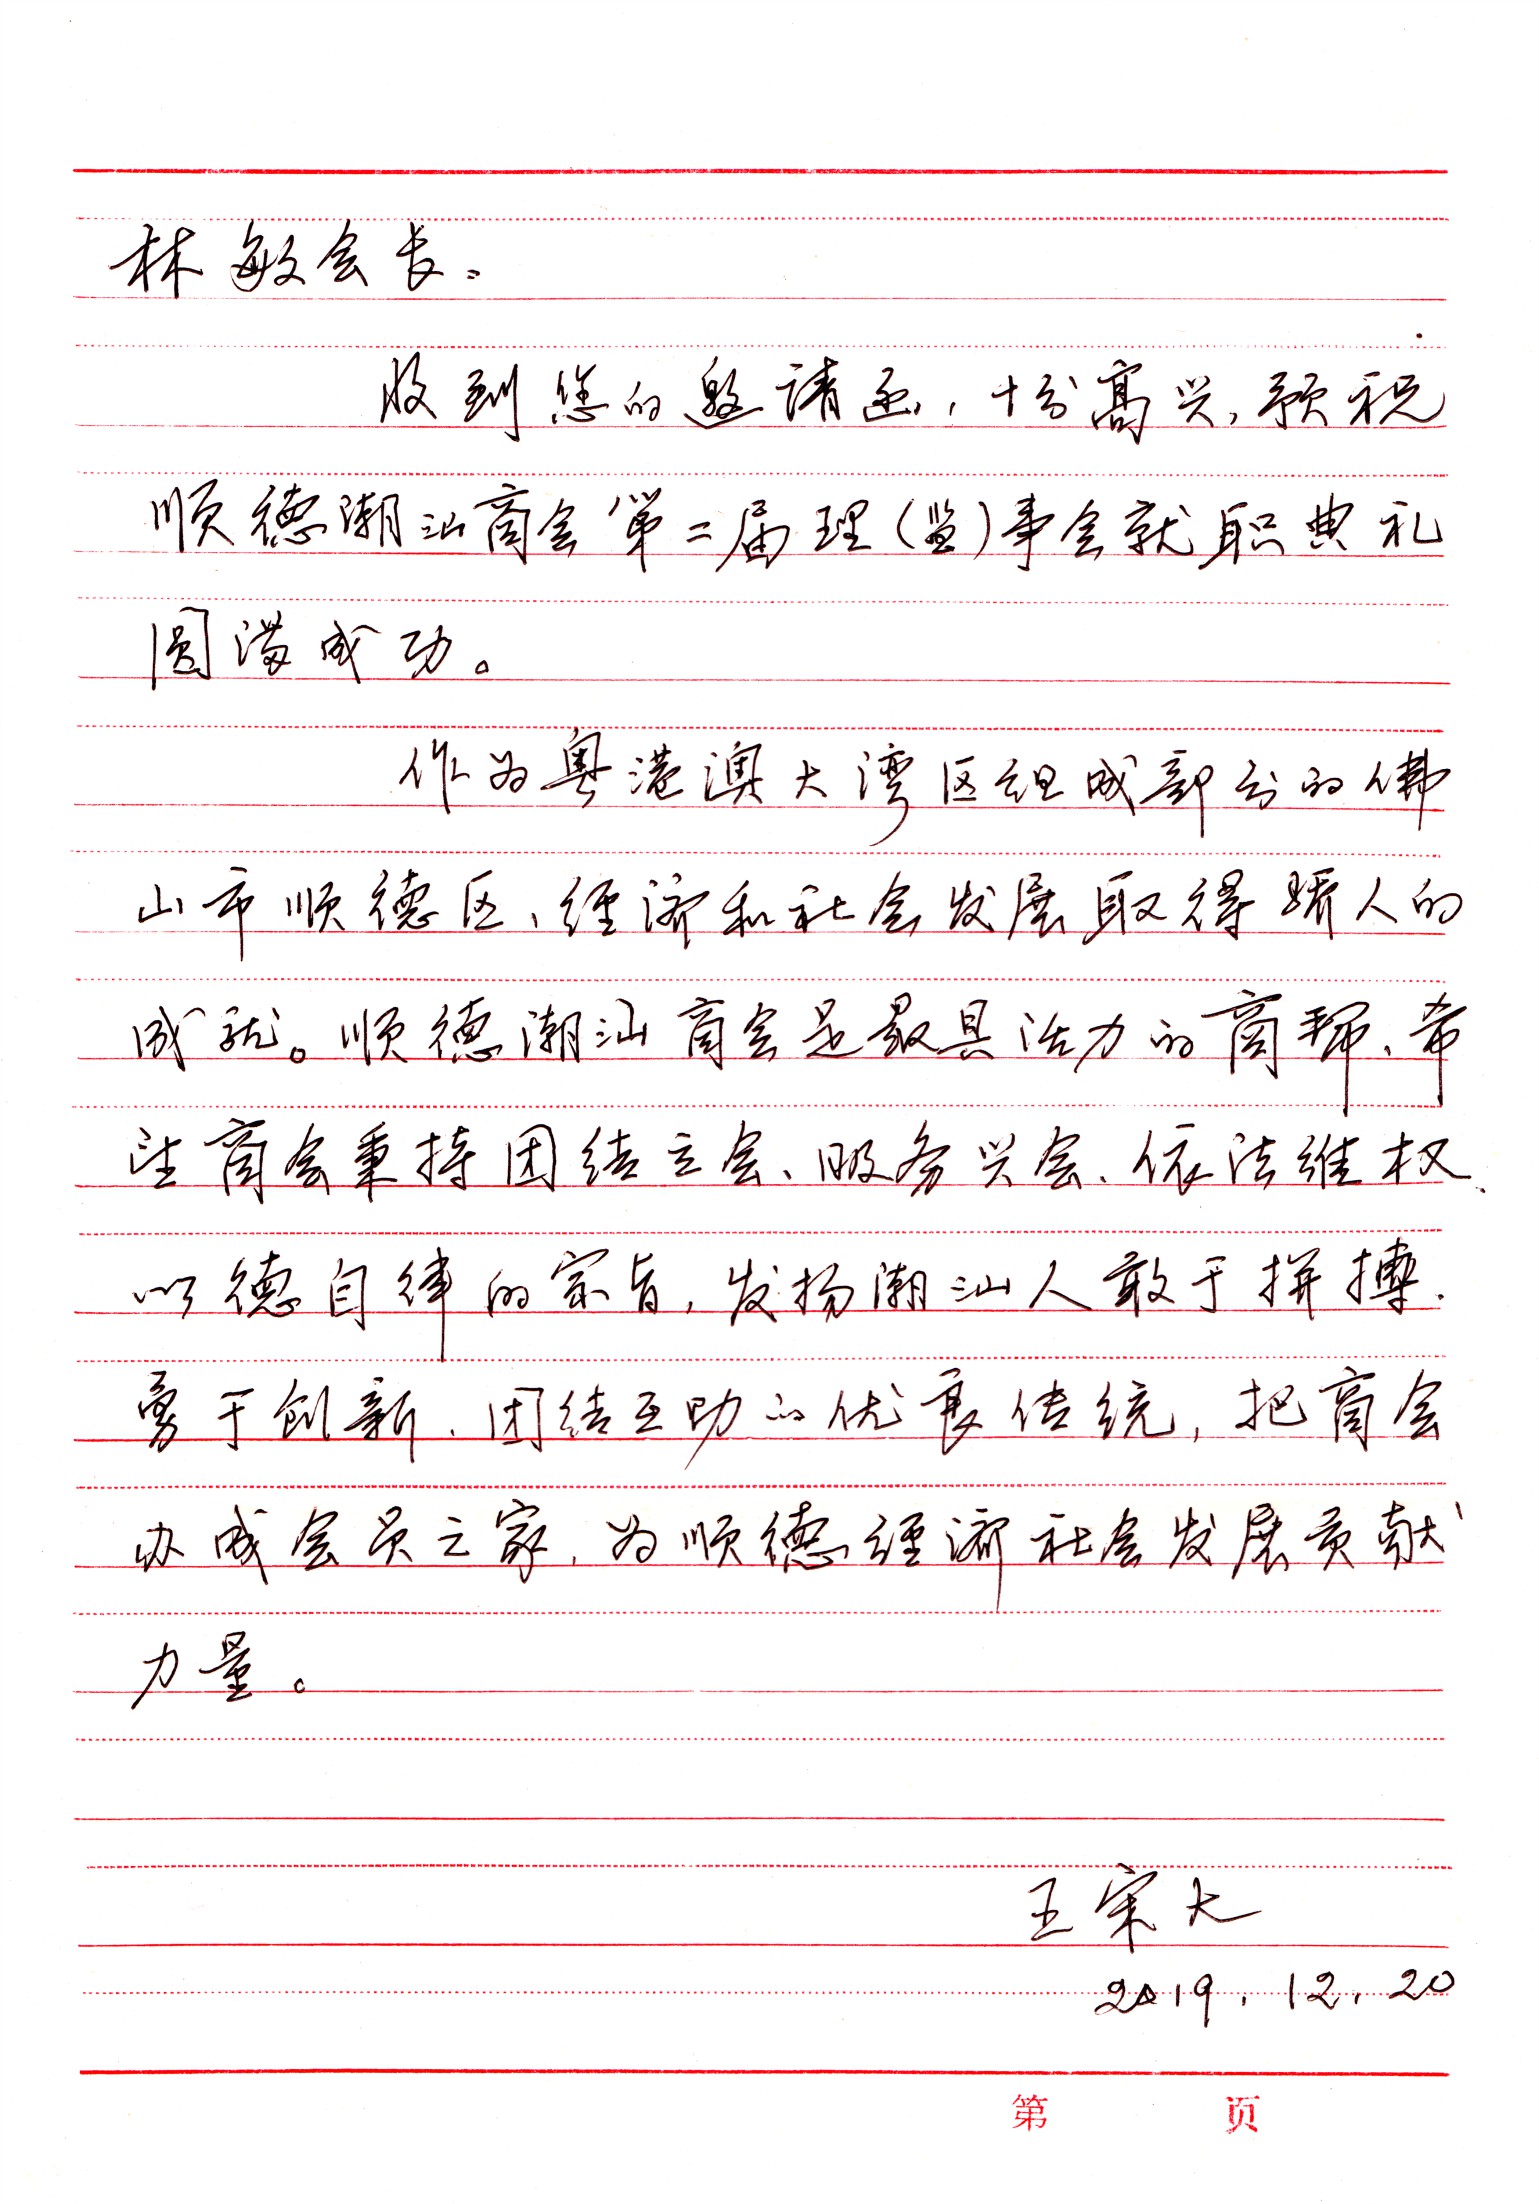 林敏会长：
收到您的邀请函，十分高兴，预祝
顺德潮汕商会第二届理（监）事会就职典礼
圆满成功。
作为粤港澳大湾区组成部分的佛
山市顺德区、经济和社会发展取得骄人的
成就。顺德潮汕商会是最具活力的商帮、希
望商会秉持团结立会、服务兴会、依法维权、
以德自律的宗旨，发扬潮汕人敢于拼搏、
勇于创新、团结互助的优良传统，把商会
办成会员之家，为顺德经济社会发展贡献
力量。
王宋大
2019.12.20
第 页